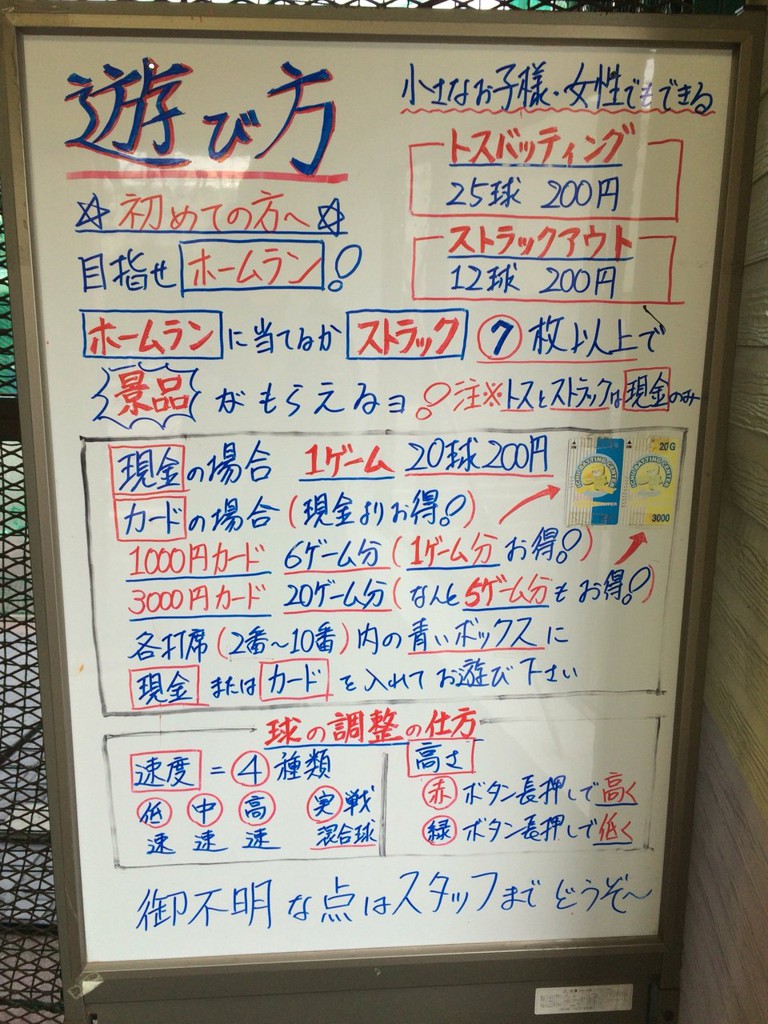 遊び方
☆初めての方へ☆
目指せ ホームラン!
小さなお子様・女性でもできる
トスバッティング
25球 200円
ストラックアウト
12球 200円
ホームランに当てるか ストラック ⑦枚以上で
景品がもらえるヨ! 注※トスとストラックは現金のみ
現金の場合 1ゲーム 20球200円
カードの場合(現金よりお得!)
1000円カード 6ゲーム分(1ゲーム分お得!)
3000円カード 20ゲーム分(なんと5ゲーム分もお得!)
20G
3000
各打席(2番〜10番)内の青いボックスに
現金 または カード を入れてお遊び下さい
球の調整の仕方
速度=④種類
低速 中速 高速 実戦混合球
高さ
赤ボタン長押しで高く
緑ボタン長押しで低く
御不明な点はスタッフまでどうぞ〜